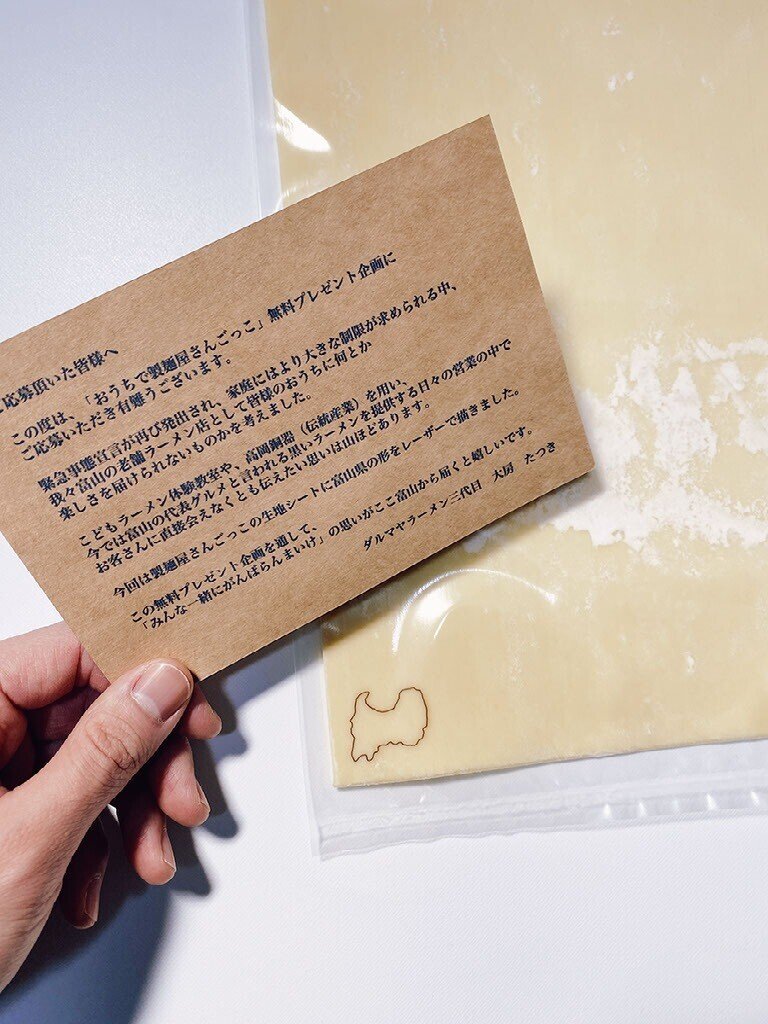 ご応募頂いた皆様へ
この度は、「おうちで製麺屋さんごっこ」無料プレゼント企画に
ご応募いただき有難うございます。
緊急事態宣言が再び発出され、家庭にはより大きな制限が求められる中、
我々富山の老舗ラーメン店として皆様のおうちに何とか
楽しさを届けられないものかを考えました。
こどもラーメン体験教室や、高岡銅器（伝統産業）を用い、
今では富山の代表グルメと言われる黒いラーメンを提供する日々の営業の中で
お客さんに直接会えなくとも伝えたい思いは山ほどあります。
今回は製麺屋さんごっこの生地シートに富山県の形をレーザーで描きました。
この無料プレゼント企画を通して、
「みんな一緒にがんばらんまいけ」の思いがここ富山から届くと嬉しいです。
ダルマヤラーメン三代目　大房　たつき